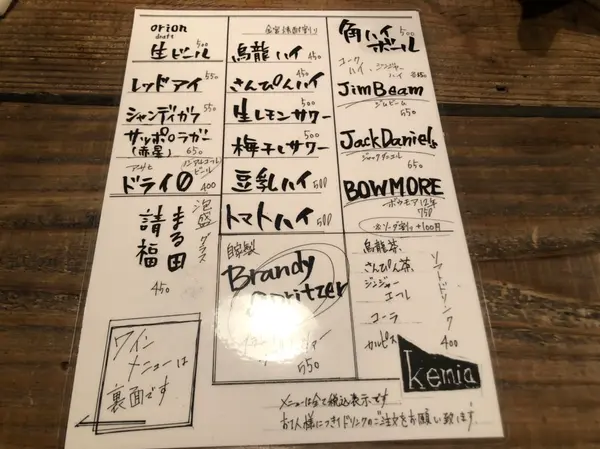 orion
draft
生ビール 500
レッドアイ 550
シャンディガフ 550
サッポロラガー
(赤星) 650
アサヒ ノンアルコールビール
ドライ0 400
泡盛 グラス
まる田
請福
450
ワイン
メニューは
裏面です
烏龍ハイ 450
さんぴんハイ 450
生レモンサワー 500
梅干しサワー 500
豆乳ハイ 500
トマトハイ 500
自家製
Brandy
Spritzer
550
角ハイボール 500
コークハイ、ジンジャーハイ
JimBeam
ジムビーム
650
JackDaniels
ジャックダニエル
650
BOWMORE
ボウモア12年
750
※ソーダ割り +100円
ソフトドリンク
烏龍茶
さんぴん茶
ジンジャーエール
コーラ
カルピス 400
kemia
メニューは全て税込表示です
お1人様につき1ドリンクのご注文をお願い致します